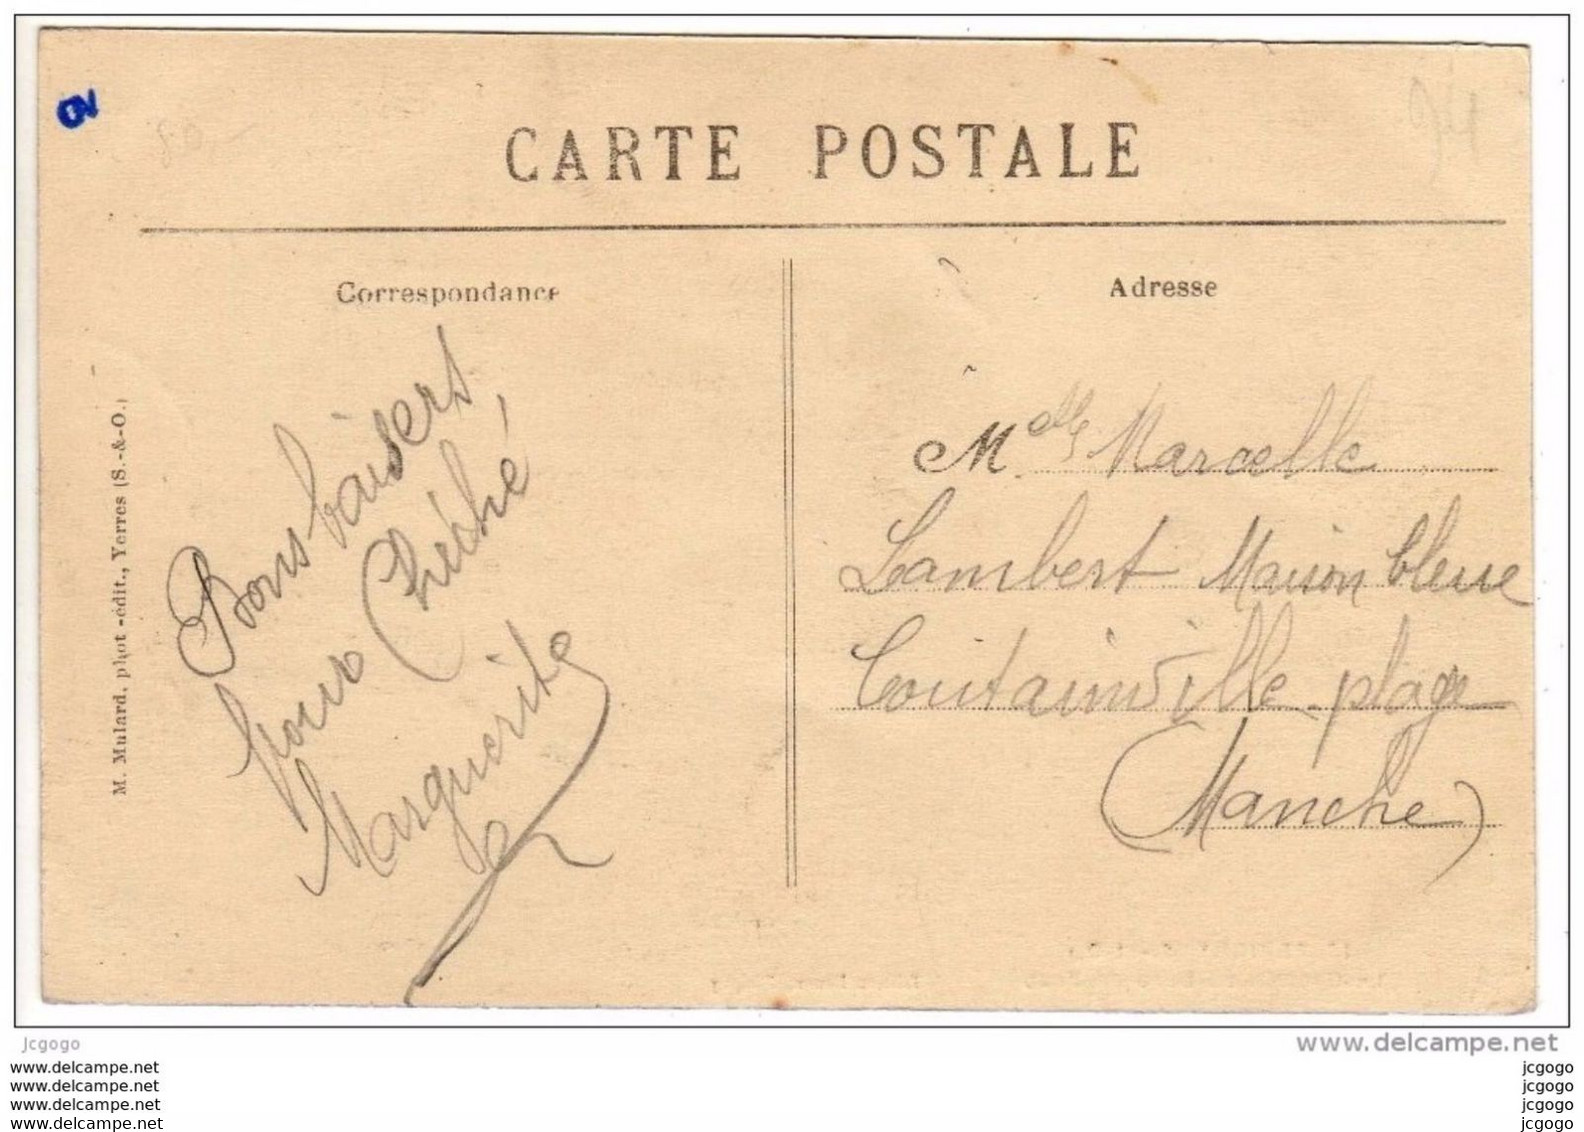 CARTE POSTALE
Correspondance
Adresse
Bons baisers
pour Chéché
Marguerite
Melle Marcelle
Lambert Maison bleue
Coutainville-plage
(Manche)
M. Mulard, phot-édit., Yerres (S.-&-O.)
jcgogo
www.delcampe.net
www.delcampe.net
www.delcampe.net
www.delcampe.net
www.delcampe.net
jcgogo
jcgogo
jcgogo
jcgogo